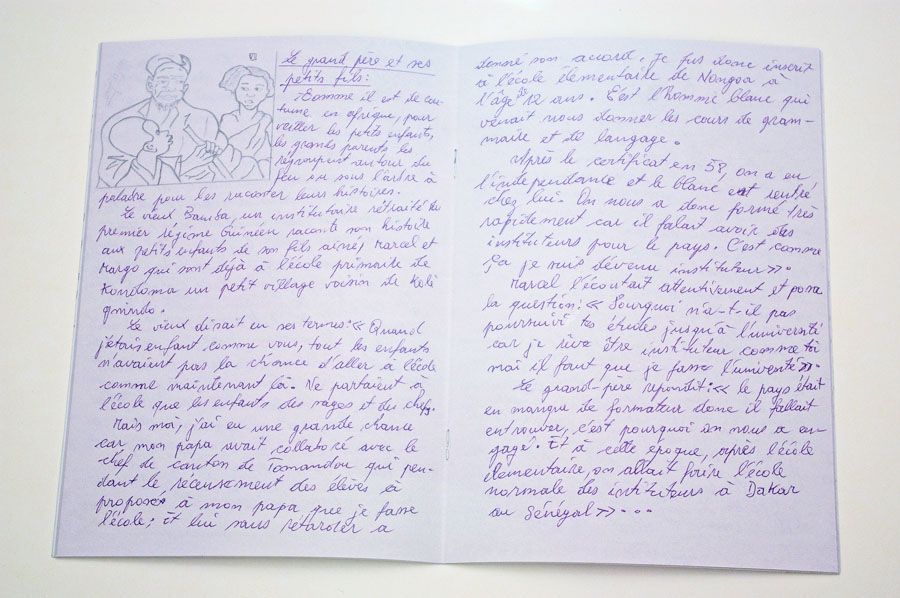 Le grand père et ses
petits fils:
Comme il est de cou-
tume en afrique, pour
veiller les petits enfants,
les grands parents les
régroupent autour du
feu ou sous l'arbre à
palabre pour les raconter leurs histoires.
Le vieux Bamba, un institutaire rétraité du
premier régime Guinéen raconte son histoire
aux petits enfants de son fils ainé; Marcel et
Margo qui sont déjà à l'école primaire de
Kondoma un petit village voisin de Keli
gnindo.
Le vieux disait en ses termes: « Quand
j'étais enfant comme vous, tout les enfants
n'avaient pas la chance d'aller à l'école
comme maintenant là. Ne partaient à
l'école que les enfants des sages et des chefs.
Mais moi, j'ai eu une grande chance
car mon papa avait collaboré avec le
chef de canton de Tomandou qui pen-
dant le récensement des élèves à
proposés à mon papa que je fasse
l'école; Et lui sans rétarder a
donné son accord. Je fus donc inscrit
à l'école élémentaire de Nongoa à
l'âge de 12 ans. C'est l'homme blanc qui
venait nous donner les cours de gram-
maire et de langage.
Après le certificat en 58, on a eu
l'independance et le blanc est rentré
chez lui. On nous a donc formé très
rapidement car il falait avoir des
instituteurs pour le pays. C'est comme
ça je suis dévenu instituteur ».
Marcel l'écoutait attentivement et posa
la question: « Pourquoi n'a-t-il pas
poursuivi tes études jusqu'à l'université
car je rêve être instituteur comme toi
mai il faut que je fasse l'université ».
Le grand-père repondit: « le pays était
en manque de formateur donc il fallait
entrouver, c'est pourquoi on nous a en-
gagé. Et à cette époque, après l'école
élementaire, on allait faire l'école
normale des instituteurs à Dakar
au Sénégal » ...